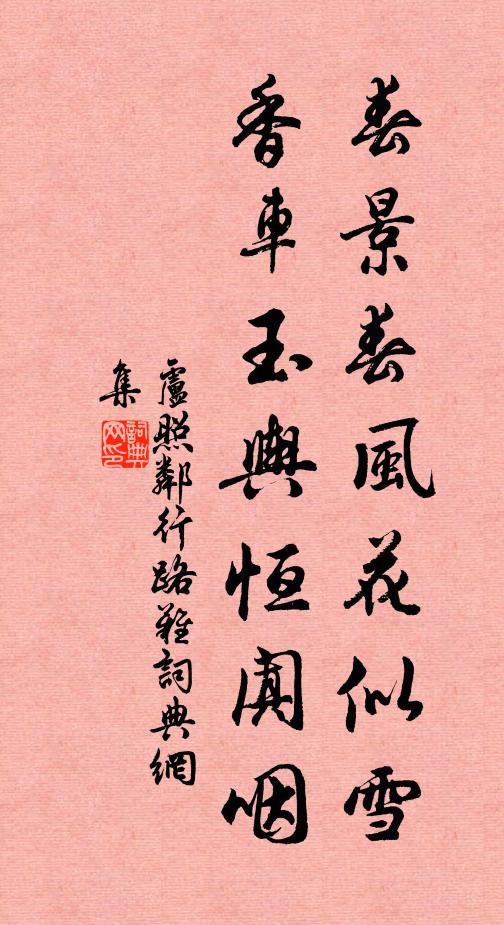 春景春風花似雪
香車玉輿恒闐咽
盧照鄰行路難詞典網
集
詞典网印